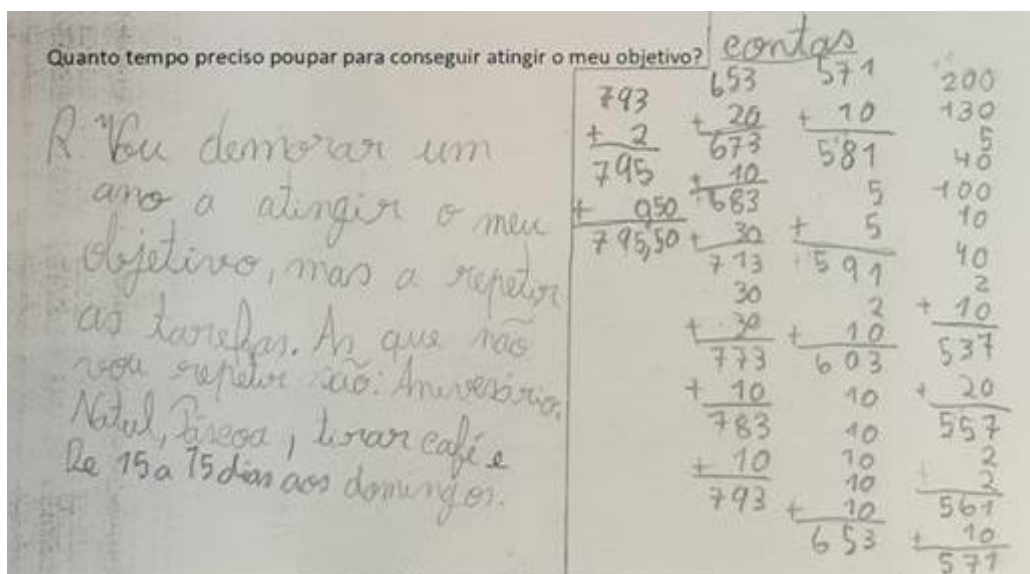 Quanto tempo preciso poupar para conseguir atingir o meu objetivo?
R: Vou demorar um
ano a atingir o meu
objetivo, mas a repetir
as tarefas. As que não
vou repetir são: Aniversário,
Natal, Páscoa, tirar café e
De 15 a 15 dias aos domingos.
contas
793
+ 2
795
+ 0,50
795,50
653
+ 20
673
+ 10
683
+ 30
713
30
+ 30
773
+ 10
783
+ 10
793
571
+ 10
581
5
+ 5
591
2
+ 10
603
10
10
10
10
+ 10
653
200
130
5
40
100
10
40
2
+ 10
537
+ 20
557
2
+ 2
561
+ 10
571